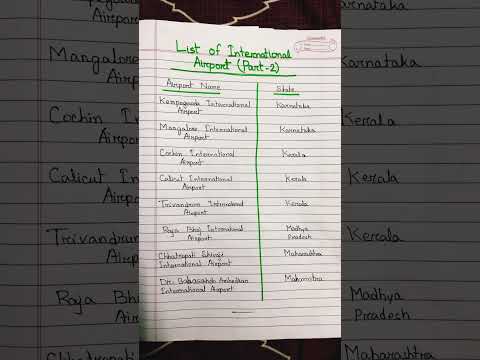 List of International
Airport (Part-2)
Airport Name State
Kempegowda International Karnataka
Airport
Mangalore International Karnataka
Airport
Cochin International Kerala
Airport
Calicut International Kerala
Airport
Trivandrum International Kerala
Airport
Raja Bhoj International Madhya
Airport Pradesh
Chhatrapati Shivaji Maharashtra
International Airport
Dr. Babasaheb Ambedkar Maharashtra
International Airport
Karnataka
Airport
Mangalore
Airport
Karnataka
Cochin
Airport
Kerala
Calicut
Airport
Kerala
Trivandrum
Kerala
Raja Bh
Madhya
Pradesh
Chhatrapati
Maharashtra